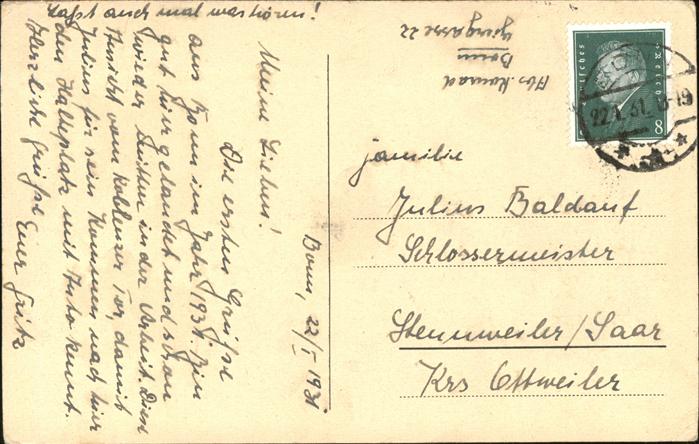 Bonn, 22/I 1931
Meine Lieben!
Die ersten Grüße
aus Bonn im Jahr 1931. Bin
gut hier gelandet und schon
wieder mitten in der Arbeit. Diese
Ansicht vom Koblenzer Tor, damit
Julius für sein Kommen nach hier
den Halteplatz mit Auto kennt.
Herzliche Grüße Euer Fritz
Laßt auch mal was hören!
Abs. Konrad
Bonn
22
Deutsches Reich
8
22.1.31. 18-19
Familie
Julius Baldauf
Schlossermeister
Stennweiler/Saar
Krs Ottweiler